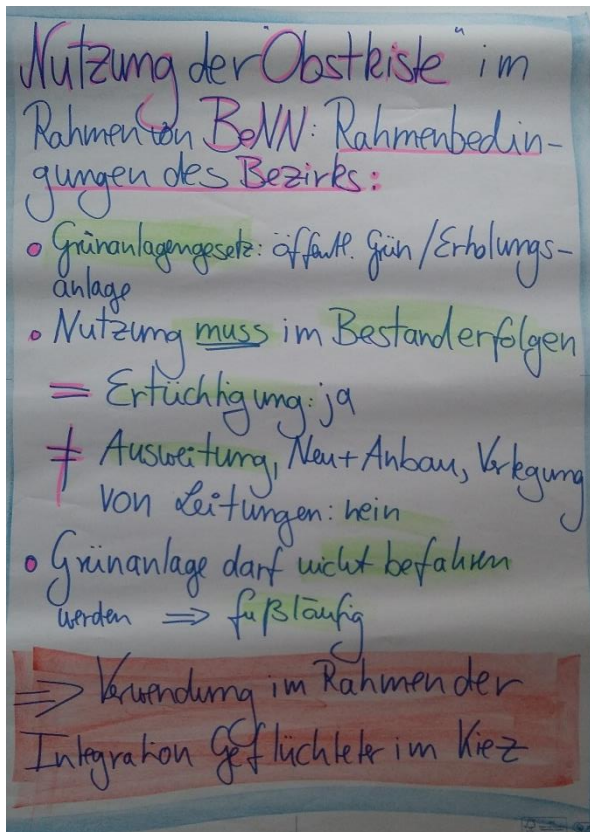 Nutzung der "Obstkiste" im
Rahmen von BeNN: Rahmenbedin-
gungen des Bezirks:
• Grünanlagengesetz: öffentl. Grün/Erholungs-
anlage
• Nutzung muss im Bestand erfolgen
= Ertüchtigung: ja
≠ Ausweitung, Neu+Anbau, Verlegung
von Leitungen: nein
• Grünanlage darf nicht befahren
werden ⇒ fußläufig
⇒ Verwendung im Rahmen der
Integration Geflüchteter im Kiez